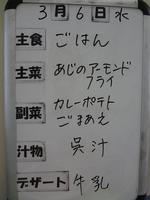 3月6日水
主食 ごはん
主菜 あじのアーモンド
フライ
副菜 カレーポテト
ごまあえ
汁物 呉汁
デザート 牛乳